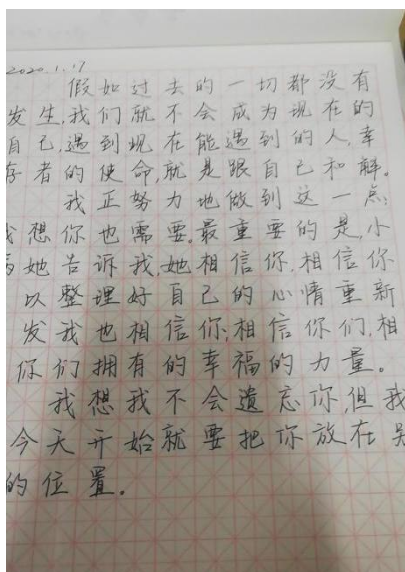 2020.1.17
假如过去的一切都没有
发生,我们就不会成为现在的
自己,遇到现在能遇到的人,幸
存者的使命,就是跟自己和解。
我正努力地做到这一点,
我想你也需要,最重要的是,小
她告诉我,她相信你,相信你
以整理好自己的心情重新
发我也相信你,相信你们,相
你们拥有的幸福的力量。
我想我不会遗忘你,但我
今天开始就要把你放在
的位置。